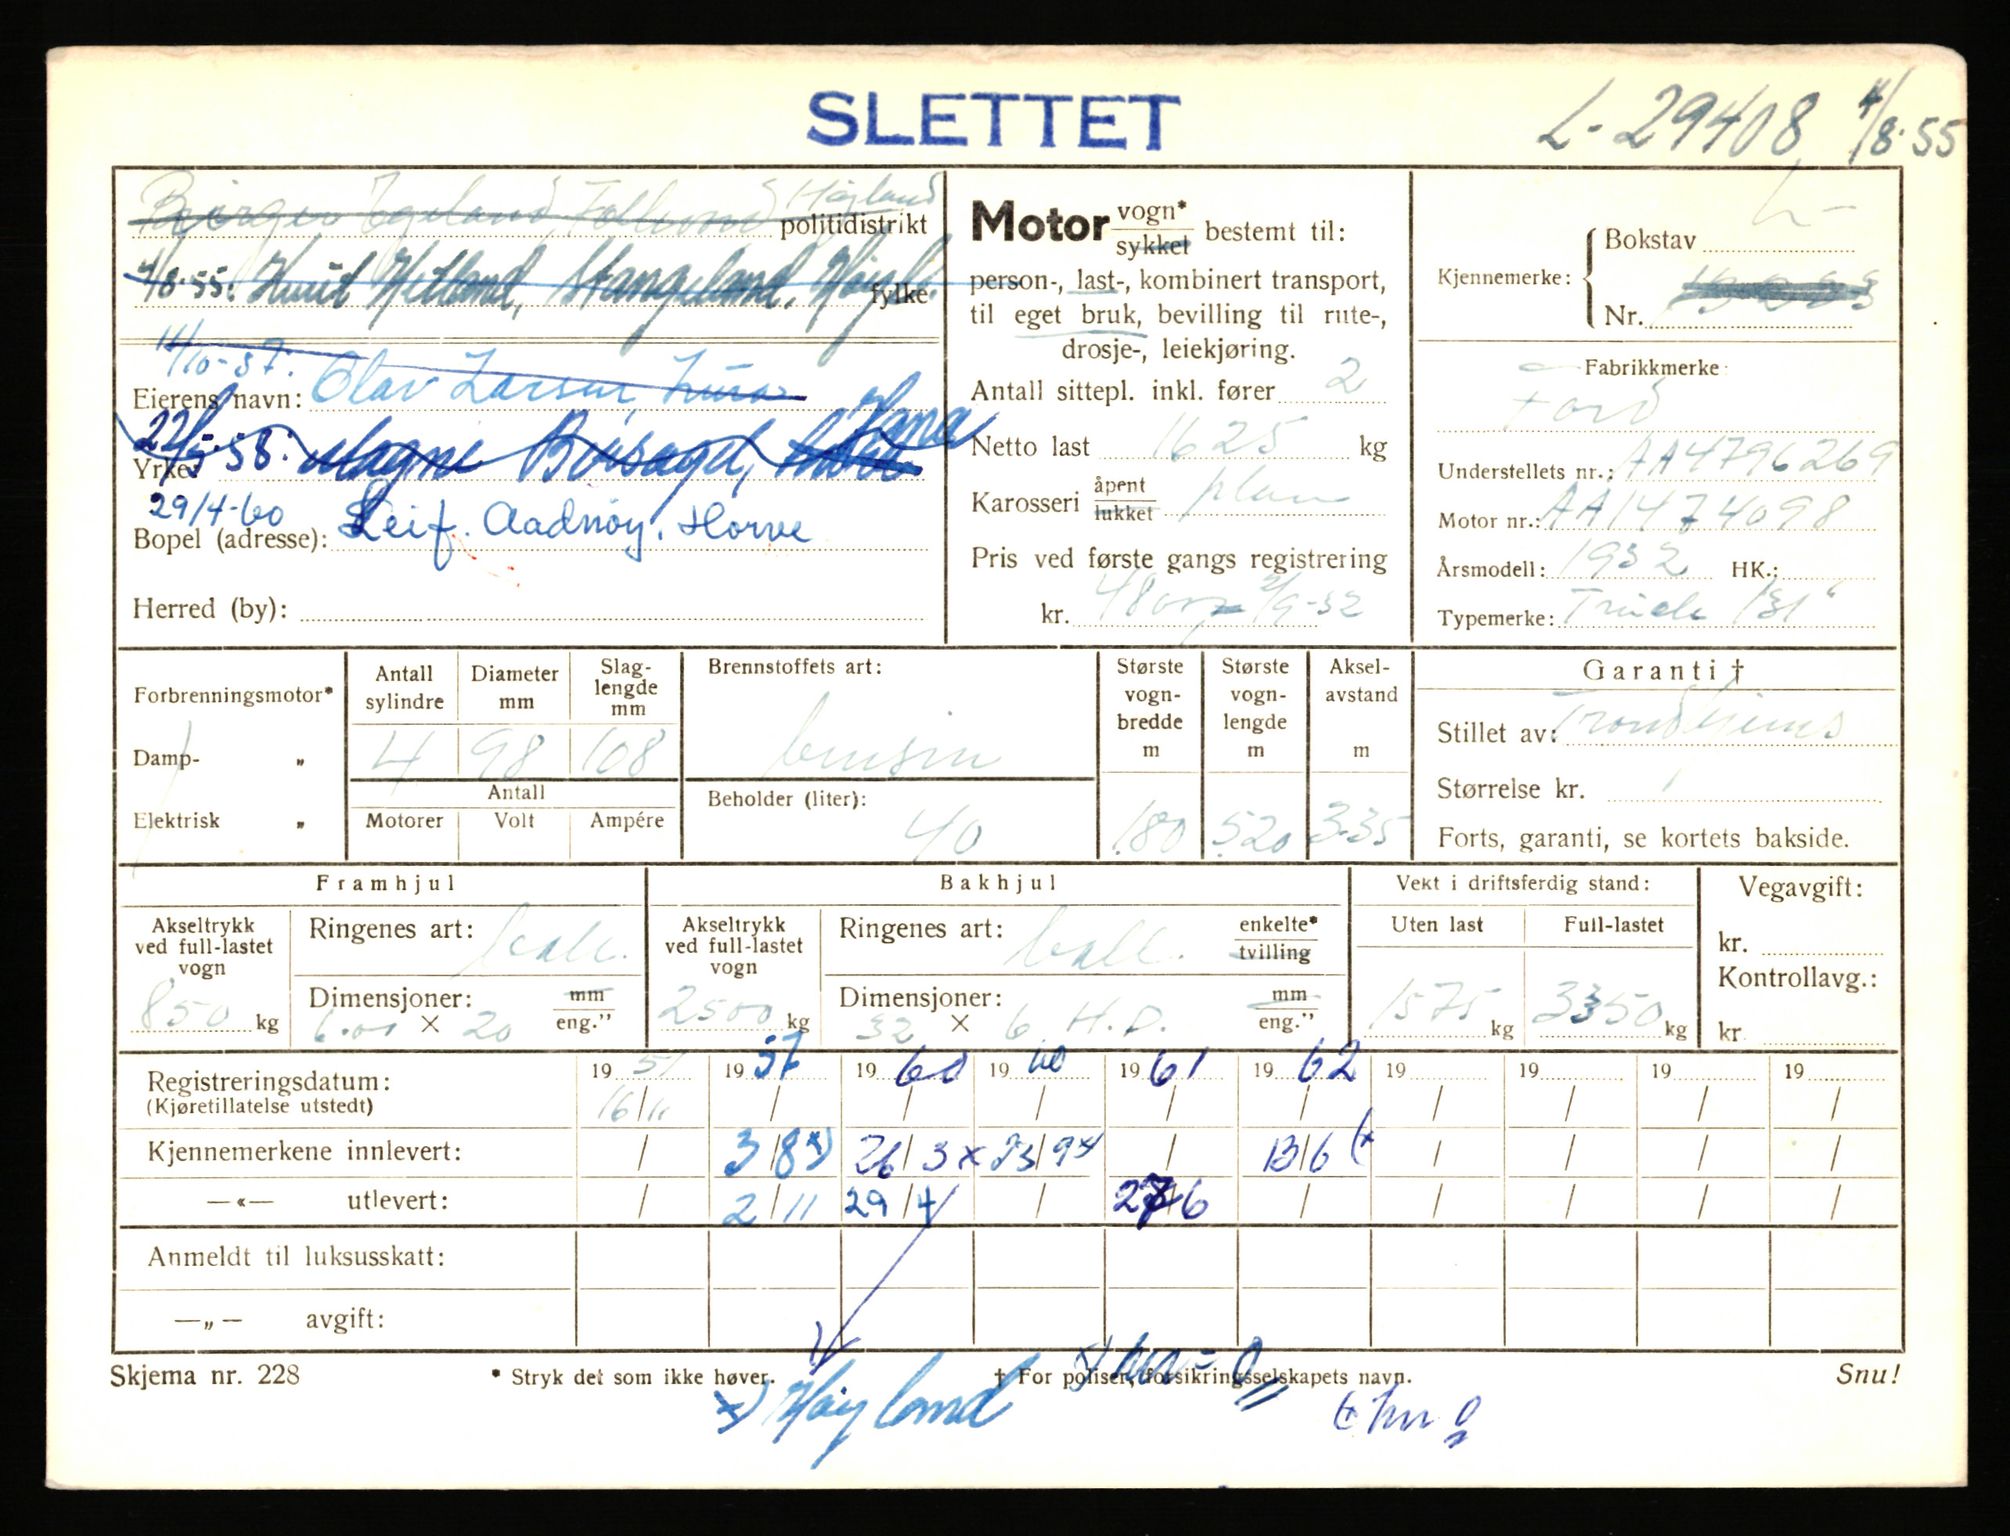 SLETTET
L-29408 4/8-55
Høyland
politidistrikt
4/8-55: Knut Hetland, Stangeland, Høyl.
fylke
14/10-57.
Eierens navn: Olav Larsen, Lura
22/5-58: Magne Boisagd, Hana
Yrke:
29/4-60 Leif. Aadnøy. Horve
Bopel (adresse):
Herred (by):
Motor vogn*
sykkel bestemt til:
person-, last-, kombinert transport,
til eget bruk, bevilling til rute-,
drosje-, leiekjøring.
Antall sittepl. inkl. fører 2
Netto last 1625 kg
Karosseri åpent
lukket plan
Pris ved første gangs registrering
kr. 4800 2/9-32
L-
Kjennemerke: Bokstav
Nr.
Fabrikkmerke
Ford
Understellets nr.: AA4796269
Motor nr.: AA1474098
Årsmodell: 1932 HK.:
Typemerke: Truck 131"
Forbrenningsmotor*
Damp- „
Elektrisk „
Antall sylindre
Diameter mm
Slag-lengde mm
4 98 108
Antall
Motorer Volt Ampére
Brennstoffets art:
bensin
Beholder (liter):
40
Største vogn-bredde m
180
Største vogn-lengde m
520
Aksel-avstand m
3.35
Garanti †
Stillet av: Trondhjems
Størrelse kr.
Forts, garanti, se kortets bakside.
Framhjul
Akseltrykk ved full-lastet vogn
850 kg
Ringenes art: ball.
Dimensjoner: mm
6.00 × 20 eng."
Bakhjul
Akseltrykk ved full-lastet vogn
2500 kg
Ringenes art: ball. enkelte*
tvilling
Dimensjoner: mm
32 × 6 H.D. eng."
Vekt i driftsferdig stand:
Uten last Full-lastet
1575 kg 3350 kg
Vegavgift:
kr.
Kontrollavg.:
kr.
Registreringsdatum: 19 51 19 57 19 60 19 60 19 61 19 62 19 19 19 19
(Kjøretillatelse utstedt) 16/11 / / / / / / / / /
Kjennemerkene innlevert: / 3/8 x) 26/3 x 23/9 x / 13/6 (x / / / /
—«— utlevert: / 2/11 29/4 / 27/6 / / / / /
Anmeldt til luksusskatt:
—„— avgift:
Skjema nr. 228
* Stryk det som ikke høver.
† For poliser, forsikringsselskapets navn.
Snu!
x) Høyland